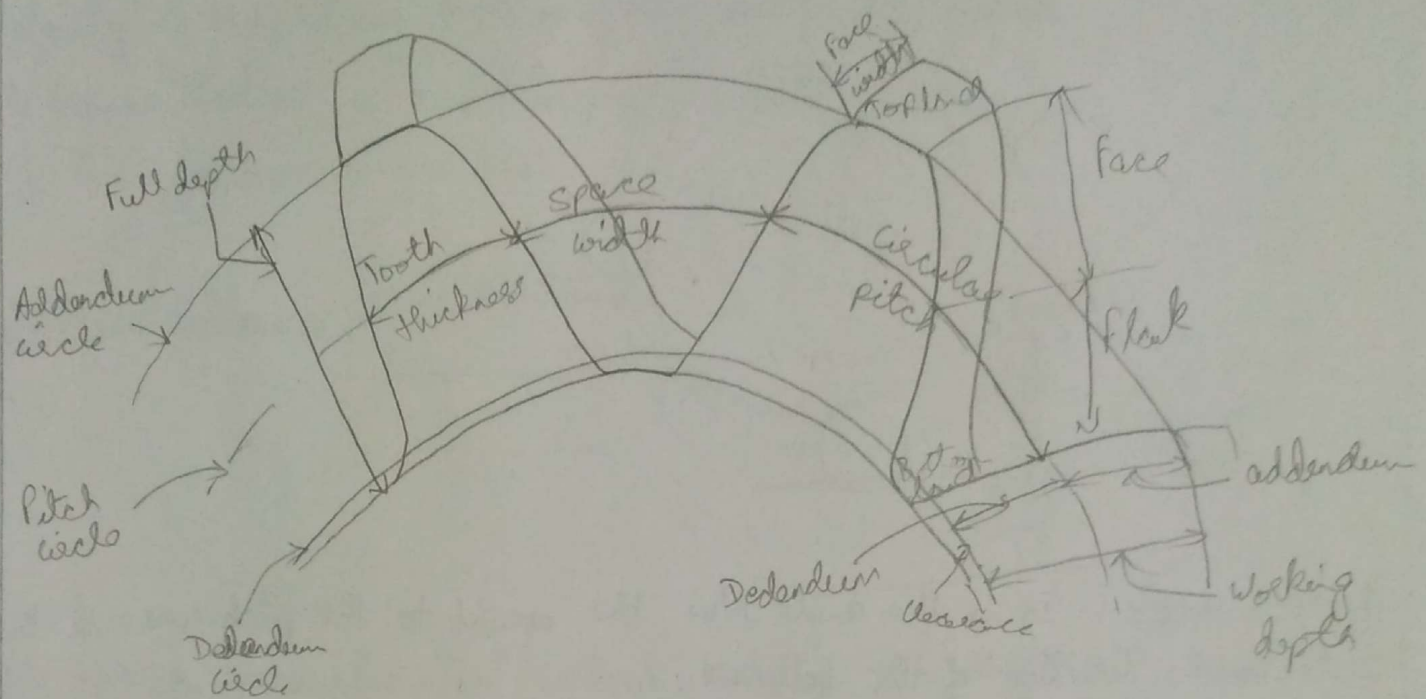 Face
width
Top land
Face
Full depth
Space
width
Tooth
thickness
Circular
Pitch
Flank
Addendum
circle
Pitch
circle
Bottom
land
addendum
Dedendum
Clearance
Working
depth
Dedendum
circle